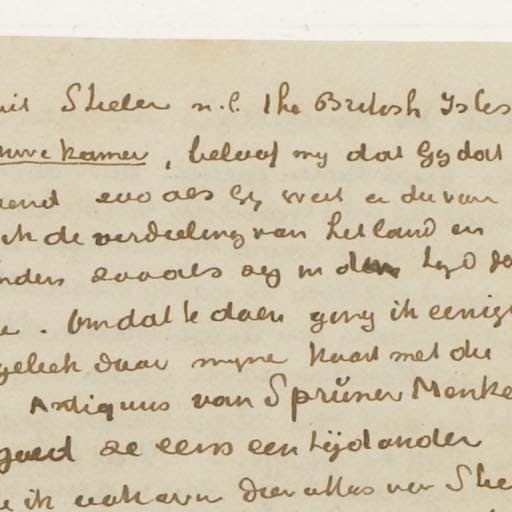 uit Stieler n.l. The British Isles
uwe kamer, beloof my dat Gy dat
zend zooals Gy weet en die van
ik de verdeeling van het land en
zooals zy in den tyd
. Omdat te doen ging ik eenig
geleek daar myne kaart met die
Antiquus van Sprüner Menke
goed ze eens een tijd onder
ik ook aan dien atlas van Stie